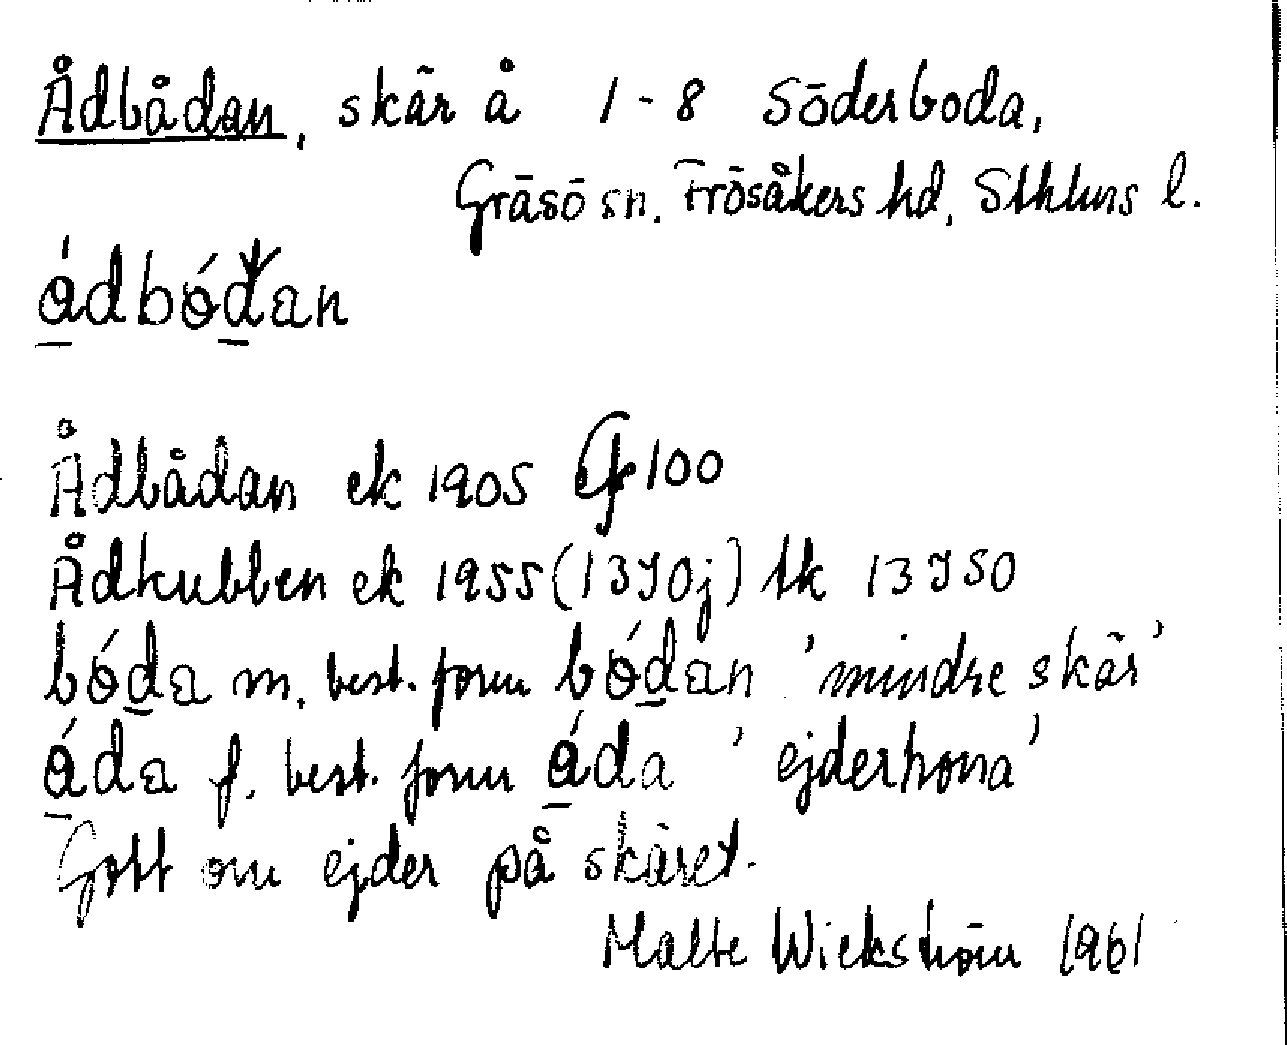 Ådbådan, skär å 1-8 Söderboda,
Gräsö sn. Frösåkers hd, Sthlms l.
ádbódan
Ådbådan ek 1905 100
Ådkubben ek 1955 (13 J 0j) tk 13 J SO
bóda m. best. form bódan 'mindre skär'
áda f. best. form áda 'ejderhona'
Gott om ejder på skäret.
Malte Wickström 1961